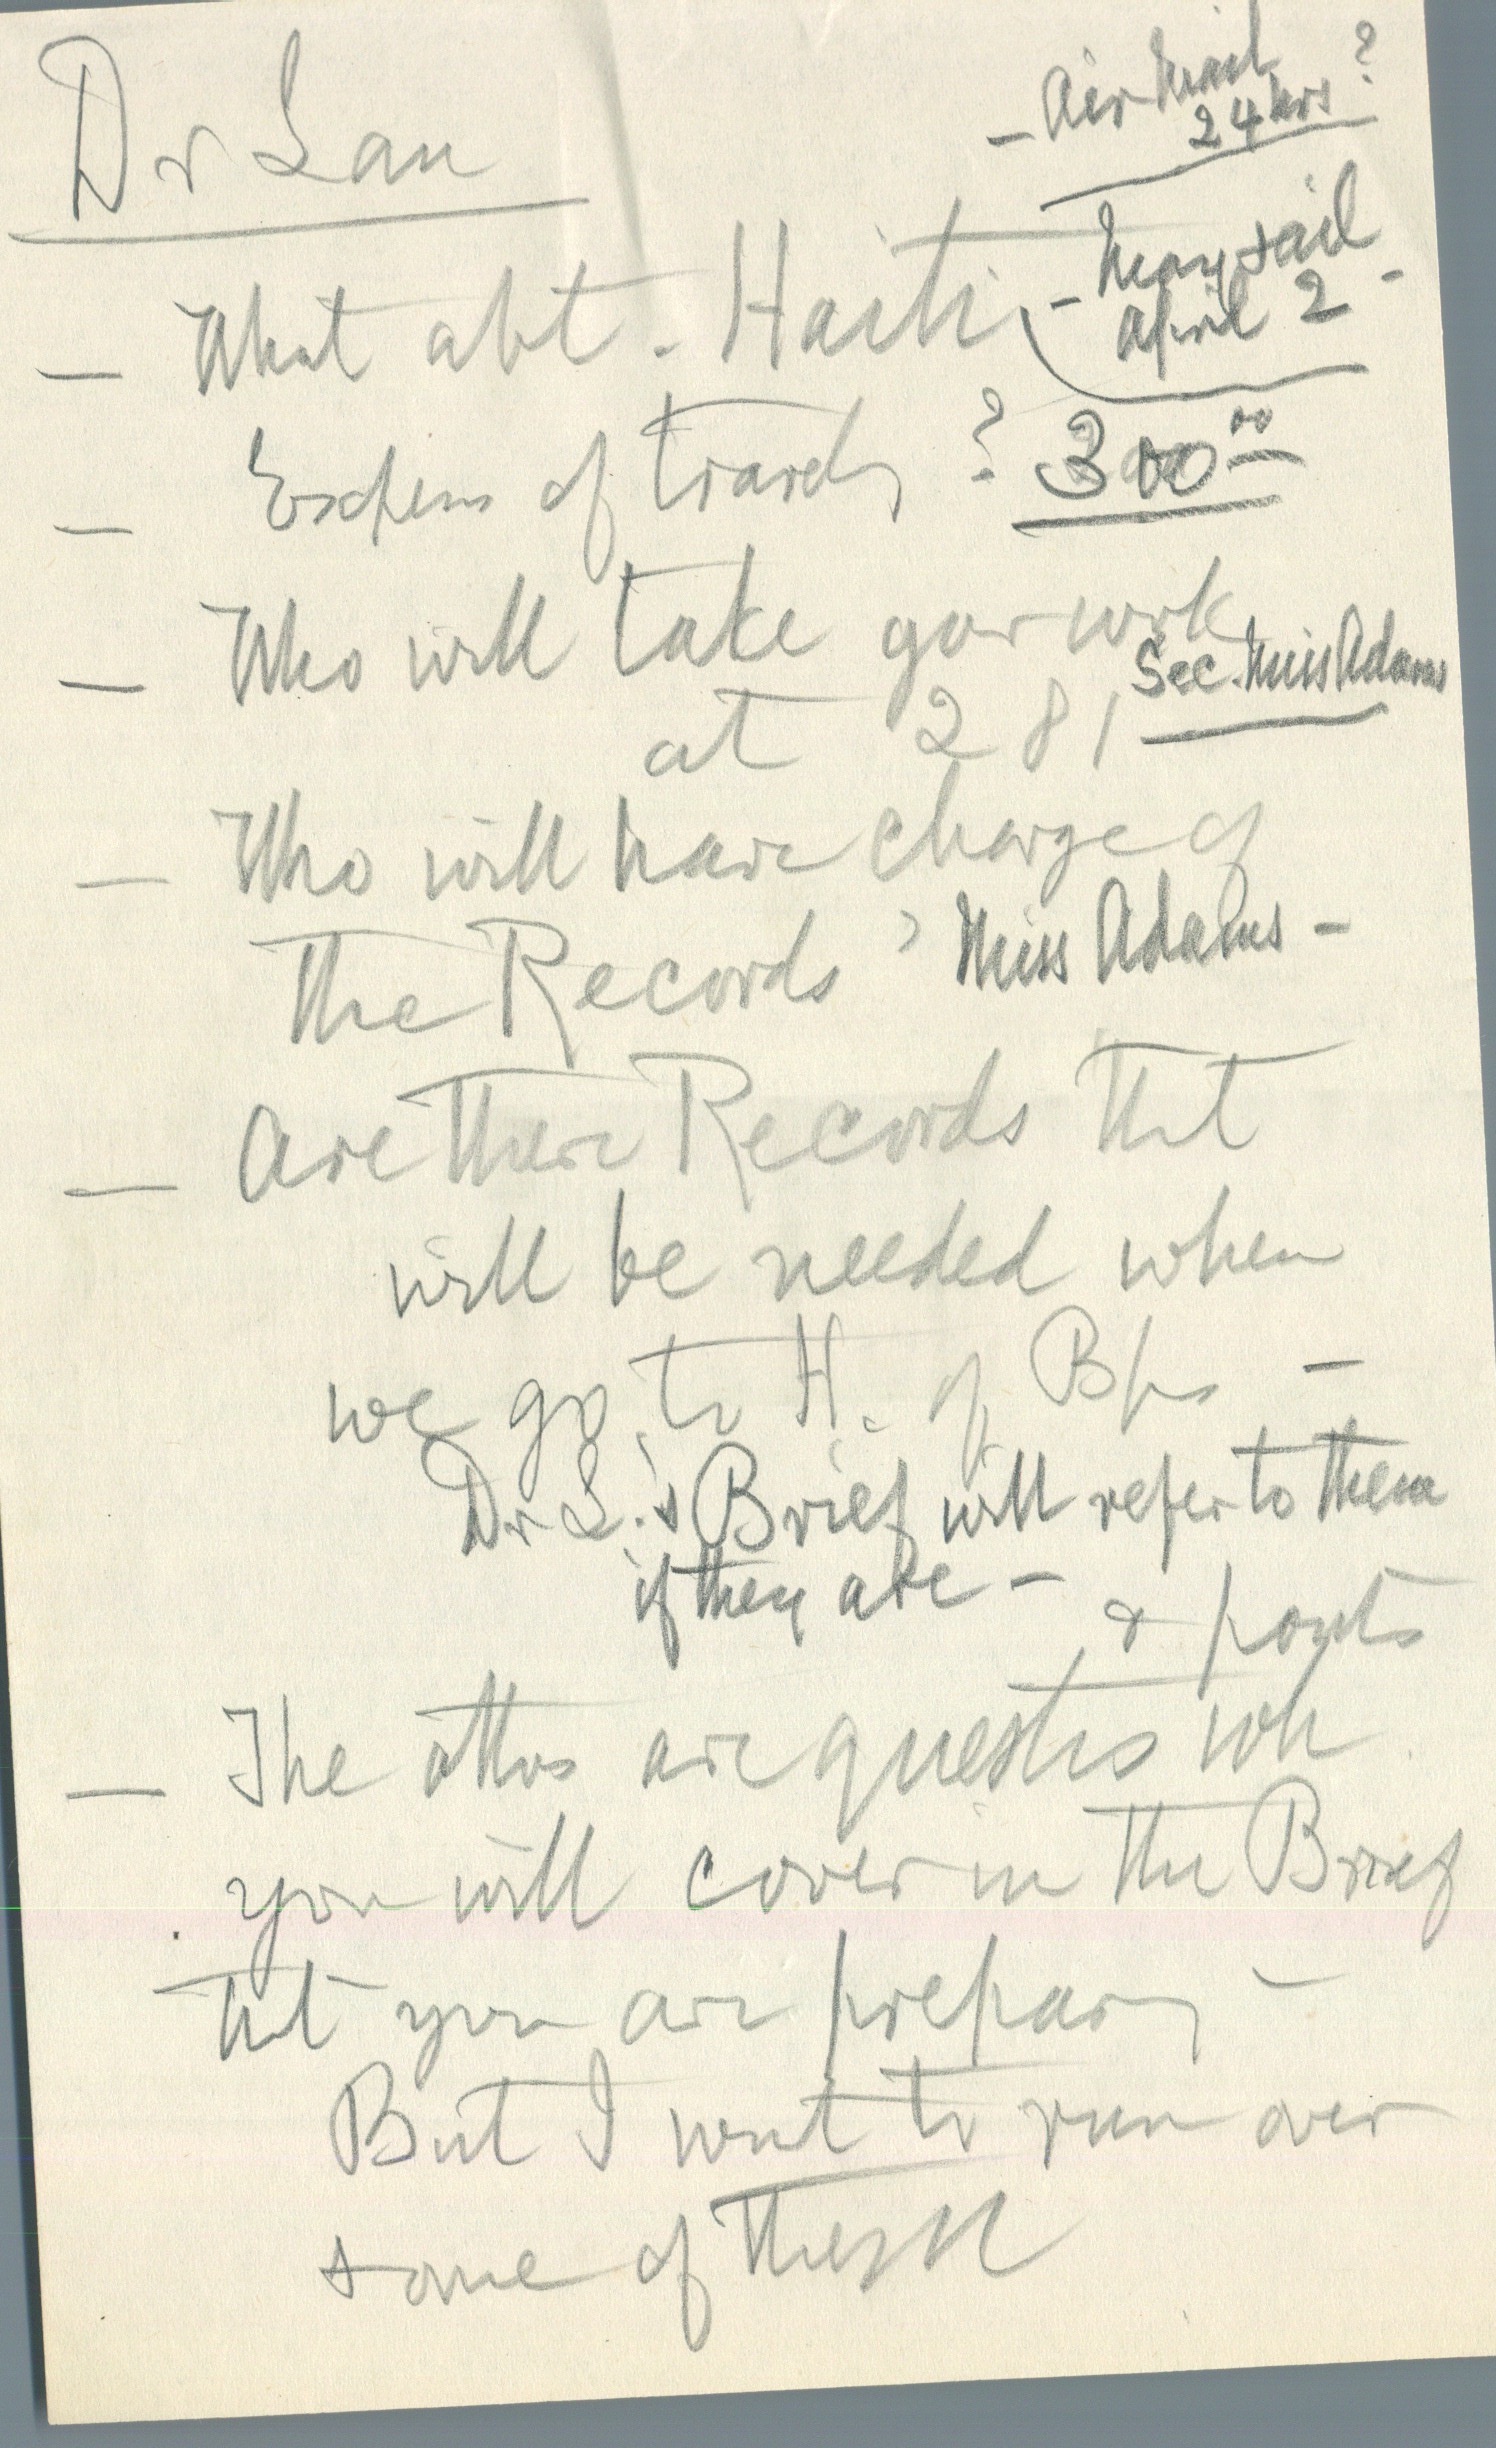 Dr Lau
- Air Mail ?
24 hrs
- What abt. Haiti
- May sail
April 2 -
- Expens of travel, ? 300.00
- Who will take your work
at 281
Sec. Miss Adams
- Who will have charge of
the Records ? Miss Adams -
- Are there Records tht
will be needed when
we go to H. of Bps -
Dr L.'s Brief will refer to them
if they are -
& points
- The othrs are quests wh
you will cover in the Brief
tht you are preparing -
But I want to run over
some of them